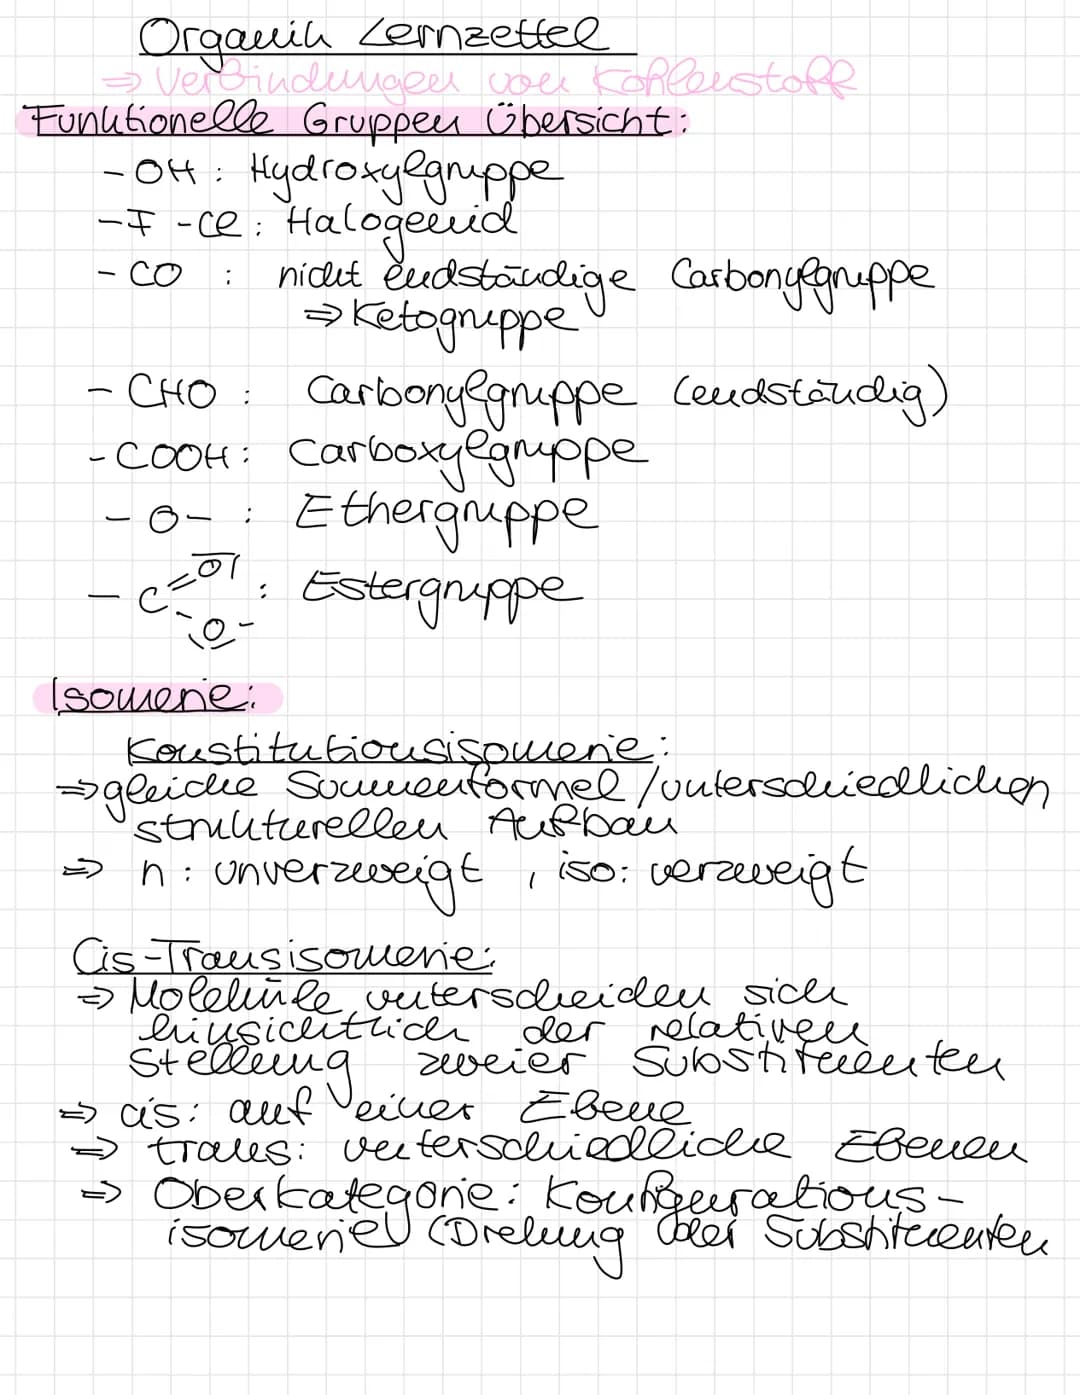 Organik Lernzettel
⇒ Verbindungen von Kohlenstoff
Funktionelle Gruppen Übersicht:
- OH : Hydroxylgruppe
- F - Cl : Halogenid
- CO : nicht endständige Carbonylgruppe
⇒ Ketogruppe
- CHO : Carbonylgruppe (endständig)
- COOH : Carboxylgruppe
- O - : Ethergruppe
- C = O - O - : Estergruppe
Isomerie:
Konstitutionsisomerie:
⇒ gleiche Summenformel / unterschiedlichen
strukturellen Aufbau
⇒ n : unverzweigt , iso: verzweigt
Cis-Transisomerie:
⇒ Moleküle unterscheiden sich
hinsichtlich der relativen
Stellung zweier Substituenten
⇒ cis: auf einer Ebene
⇒ trans: unterschiedliche Ebenen
⇒ Oberkategorie: Konfigurations-
isomerie (Drehung der Substituenten